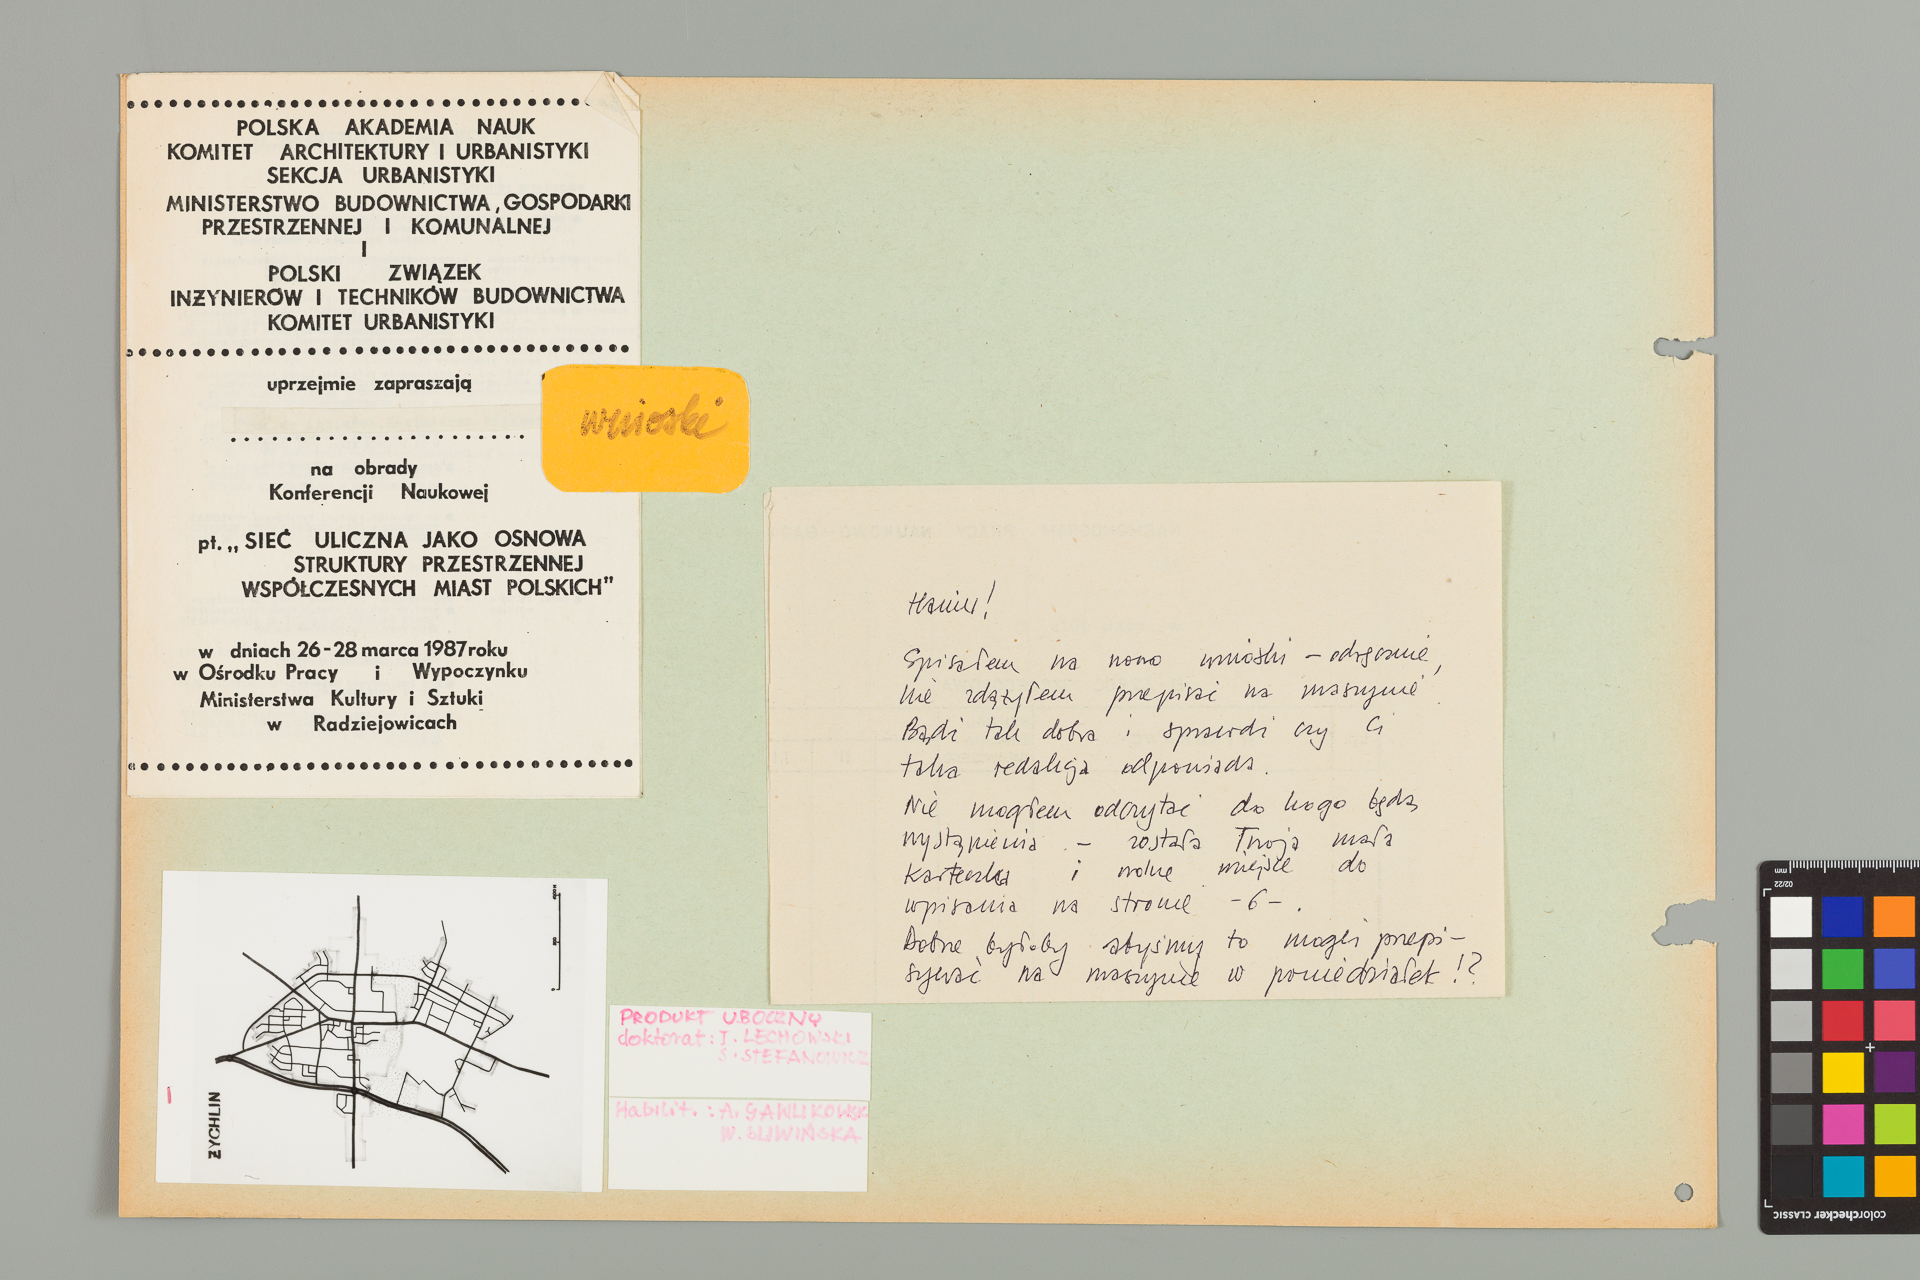 POLSKA AKADEMIA NAUK
KOMITET ARCHITEKTURY I URBANISTYKI
SEKCJA URBANISTYKI
MINISTERSTWO BUDOWNICTWA, GOSPODARKI
PRZESTRZENNEJ I KOMUNALNEJ
I
POLSKI ZWIĄZEK
INŻYNIERÓW I TECHNIKÓW BUDOWNICTWA
KOMITET URBANISTYKI
uprzejmie zapraszają
na obrady
Konferencji Naukowej
pt. „SIEĆ ULICZNA JAKO OSNOWA
STRUKTURY PRZESTRZENNEJ
WSPÓŁCZESNYCH MIAST POLSKICH"
w dniach 26-28 marca 1987 roku
w Ośrodku Pracy i Wypoczynku
Ministerstwa Kultury i Sztuki
w Radziejowicach
wnioski
Haniu!
Spisałem na nowo wnioski – odręcznie,
nie zdążyłem przepisać na maszynie.
Bądź tak dobra i sprawdź czy Ci
taka redakcja odpowiada.
Nie mogłem odczytać do kogo będą
wystąpienia – została Twoja mała
karteczka i wolne miejsce do
wpisania na stronie -6-.
Dobrze byłoby abyśmy to mogli przepi-
sywać na maszynie w poniedziałek!?
ŻYCHLIN
PRODUKT UBOCZNY
doktorat: T. LECHOWSKI
S. STEFANOWICZ
Habilit.: A. GAWLIKOWSK
W. ŚLIWIŃSKA
mm
02/22
colorchecker CLASSIC